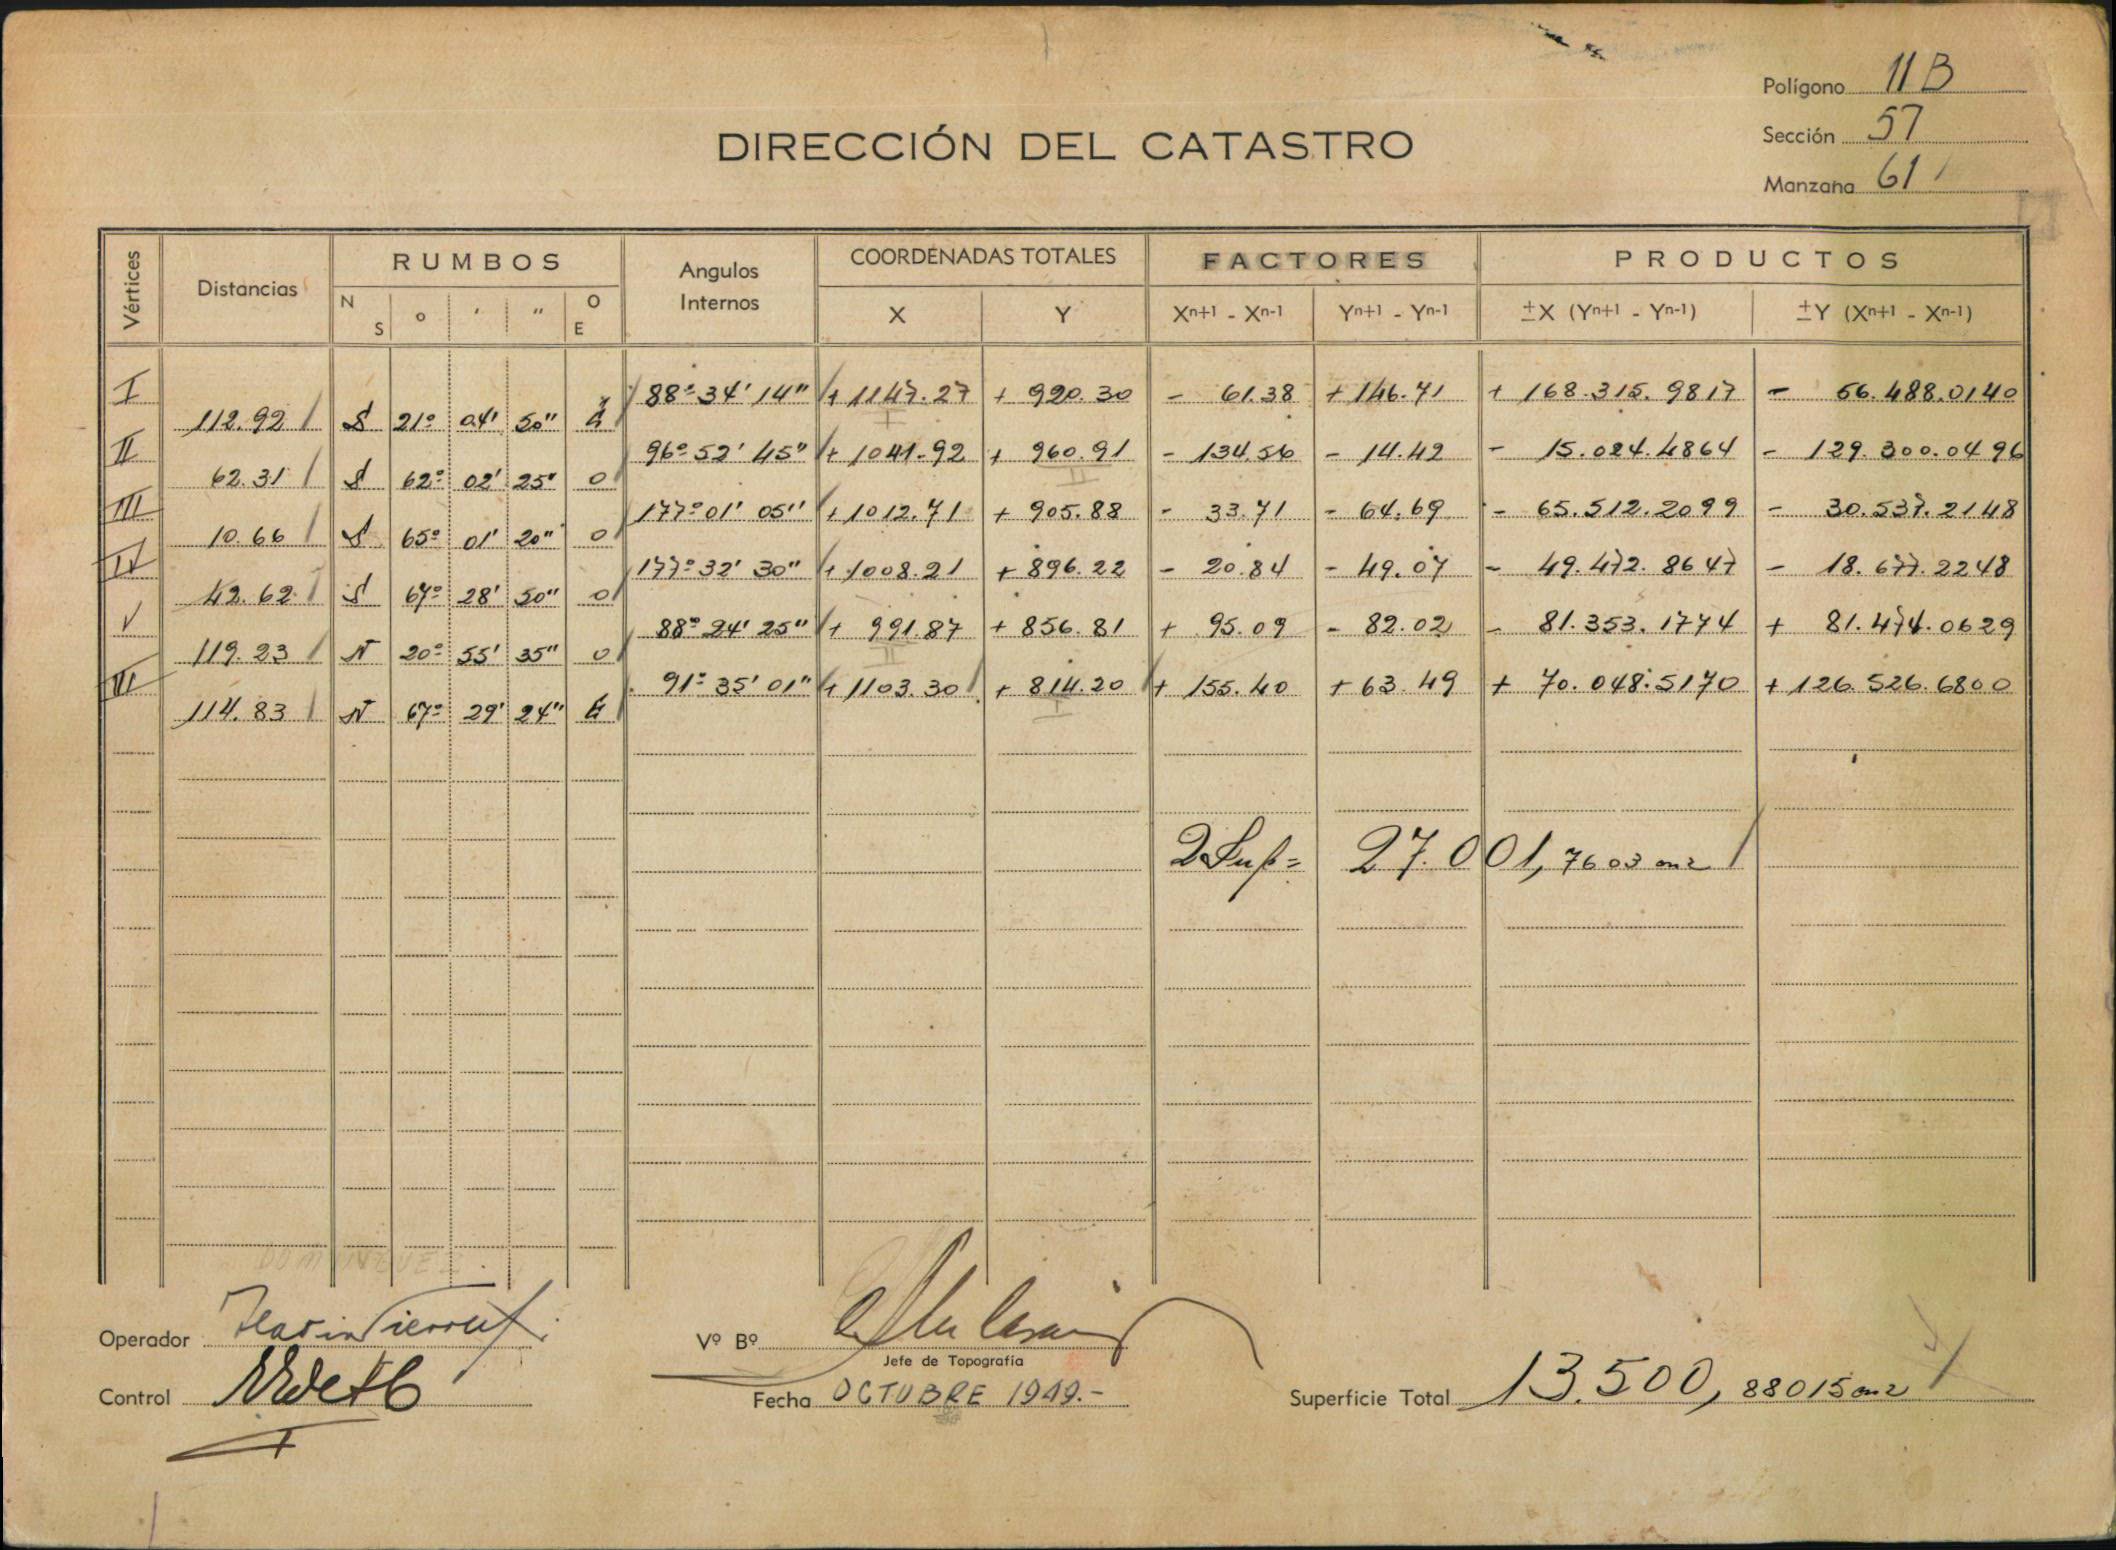 Polígono 11B
Sección 57
Manzana 61
DIRECCIÓN DEL CATASTRO
Vértices Distancias RUMBOS Angulos Internos COORDENADAS TOTALES FACTORES PRODUCTOS
N S o ' " O E X Y Xn+1 - Xn-1 Yn+1 - Yn-1 ±X (Yn+1 - Yn-1) ±Y (Xn+1 - Xn-1)
I 88° 34' 14" + 1147.27 + 920.30 - 61.38 + 146.71 + 168.315.9817 - 56.488.0140
112.92 S 21° 04' 50" E
II 96° 52' 45" + 1041.92 + 960.91 - 134.56 - 14.42 - 15.024.4864 - 129.300.0496
62.31 S 62° 02' 25" O
III 177° 01' 05" + 1012.71 + 905.88 - 33.71 - 64.69 - 65.512.2099 - 30.537.2148
10.66 S 65° 01' 20" O
IV 177° 32' 30" + 1008.21 + 896.22 - 20.84 - 49.07 - 49.472.8647 - 18.677.2248
42.62 S 67° 28' 50" O
V 88° 24' 25" + 991.87 + 856.81 + 95.09 - 82.02 - 81.353.1774 + 81.474.0629
119.23 N 20° 55' 35" O
VI 91° 35' 01" + 1103.30 + 814.20 + 155.40 + 63.49 + 70.048.5170 + 126.526.6800
114.83 N 67° 29' 24" E
2 Sup = 27.001,7603 m2
Operador
Vº Bº
Jefe de Topografía
Control
Fecha OCTUBRE 1949.-
Superficie Total 13.500,88015 m2